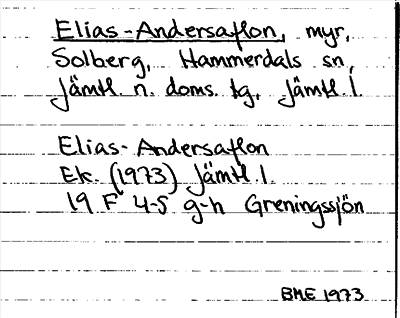 Elias-Andersaflon, myr,
Solberg, Hammerdals sn,
Jämtl. n. doms. tg, Jämtl. l.
Elias-Andersaflon
Ek. (1973) Jämtl l.
19 F 4-5 g-h Greningssjön
BME 1973